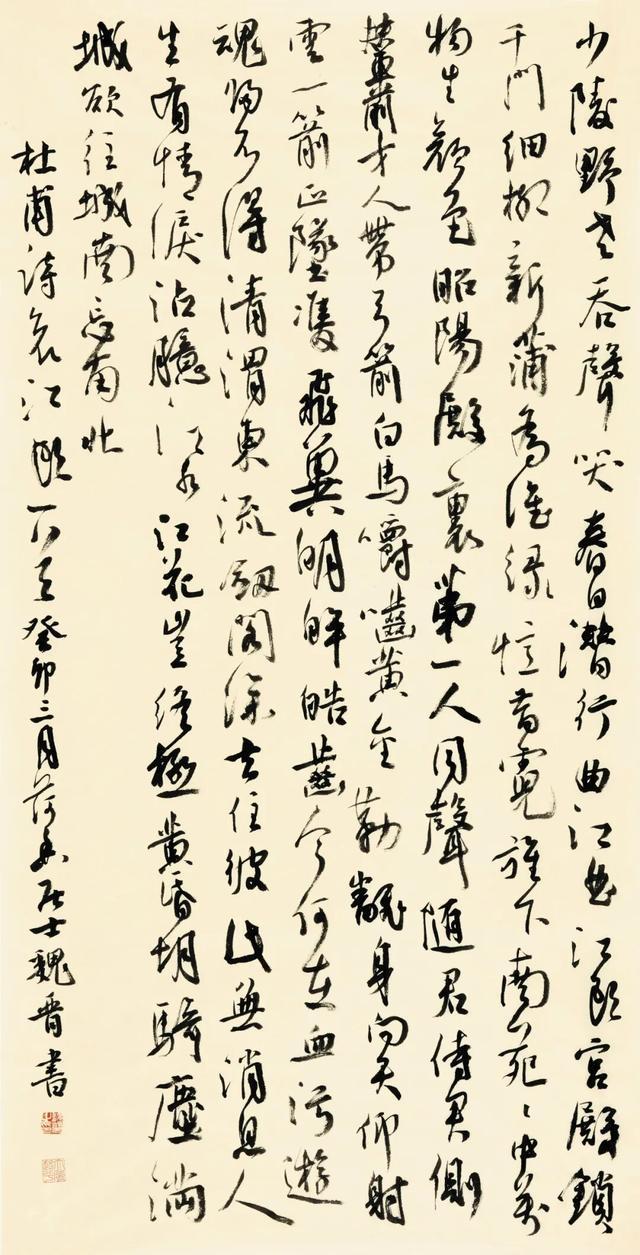 少陵野老吞聲哭春日潛行曲江曲江頭宮殿鎖
千門細柳新蒲為誰綠憶昔霓旌下南苑〻中萬
物生顏色昭陽殿裏第一人同聲隨君侍君側
輦前才人帶弓箭白馬嚼嚙黃金勒翻身向天仰射
雲一箭正墜雙飛翼明眸皓齒今何在血污遊
魂歸不得清渭東流劍閣深去住彼此無消息人
生有情淚沾臆江水江花豈終極黃昏胡騎塵滿
城欲往城南忘南北
杜甫詩哀江頭一首癸卯三月荷香居士魏晉書